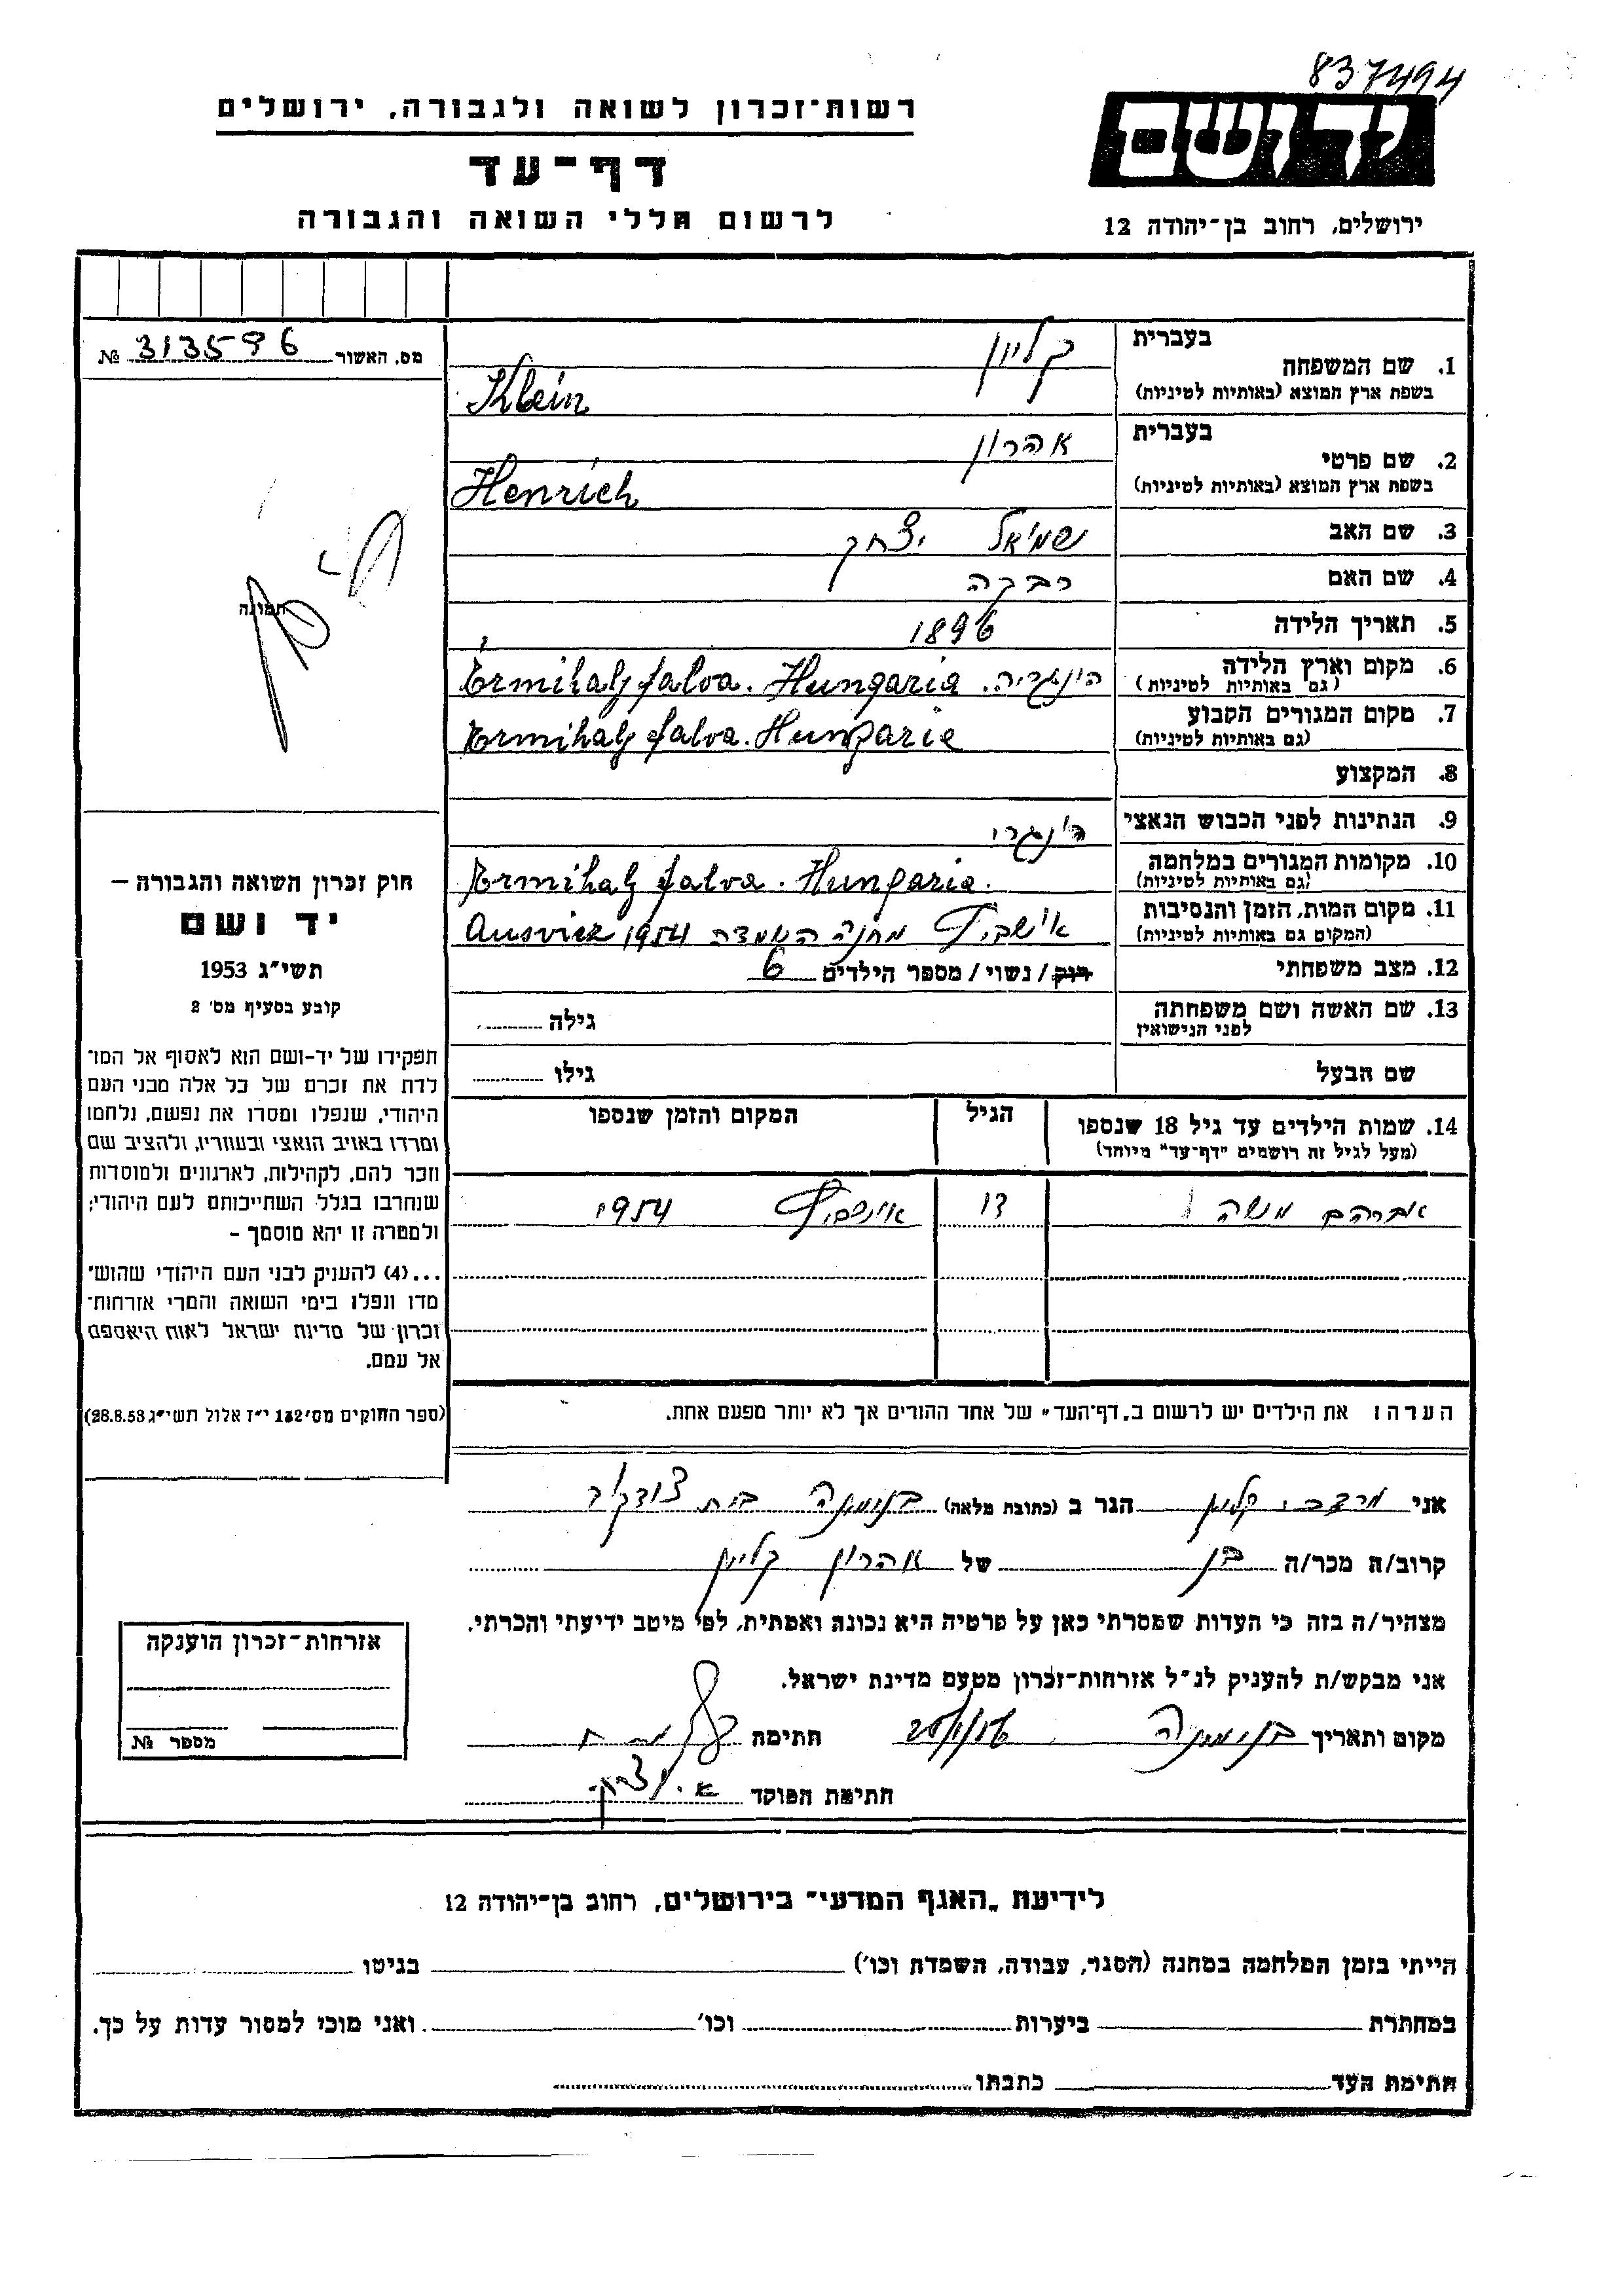 837494
רשות-זכרון לשואה ולגבורה, ירושלים
יד ושם
דף-עד
לרשום חללי השואה והגבורה
ירושלים, רחוב בן-יהודה 12
מס. האשור 313596 №
בעברית קליין
1. שם המשפחה
בשפת ארץ המוצא (באותיות לטיניות) Klein
בעברית אהרון
2. שם פרטי
בשפת ארץ המוצא (באותיות לטיניות) Henrich
3. שם האב שמואל יצחק
4. שם האם רבקה
5. תאריך הלידה 1896
6. מקום וארץ הלידה הונגריה. Érmihalyfalva. Hungaria
(גם באותיות לטיניות)
7. מקום המגורים הקבוע Érmihalyfalva. Hungarie
(גם באותיות לטיניות)
8. המקצוע
9. הנתינות לפני הכבוש הנאצי הונגרי
10. מקומות המגורים במלחמה Érmihalyfalva. Hungaria.
(גם באותיות לטיניות)
11. מקום המות, הזמן והנסיבות אושביץ מחנה השמדה 1954 Ausvicz
(המקום גם באותיות לטיניות)
12. מצב משפחתי רוק / נשוי / מספר הילדים 6
13. שם האשה ושם משפחתה גילה
לפני הנישואין
שם הבעל גילו
14. שמות הילדים עד גיל 18 שנספו הגיל המקום והזמן שנספו
(מעל לגיל זה רושמים "דף-עד" מיוחד)
אברהם משה 17 אושביץ 1954
הערה: את הילדים יש לרשום ב"דף-העד" של אחד ההורים אך לא יותר מפעם אחת.
תמונה
חוק זכרון השואה והגבורה –
יד ושם
תשי"ג 1953
קובע בסעיף מס' 2
תפקידו של יד-ושם הוא לאסוף אל המו־
לדת את זכרם של כל אלה מבני העם
היהודי, שנפלו ומסרו את נפשם, נלחמו
ומרדו באויב הנאצי ובעוזריו, ולהציב שם
וזכר להם, לקהילות, לארגונים ולמוסדות
שנחרבו בגלל השתייכותם לעם היהודי;
ולמטרה זו יהא מוסמך –
...(4) להעניק לבני העם היהודי שהוש־
מדו ונפלו בימי השואה והמרי אזרחות־
זכרון של מדינת ישראל לאות היאספם
אל עמם.
(ספר החוקים מס' 132 י"ז אלול תשי"ג 28.8.53)
אני קליין הגר ב (כתובת מלאה) בנימינה בית
קרוב/ה מכר/ה בן של אהרון קליין
מצהיר/ה בזה כי העדות שמסרתי כאן על פרטיה היא נכונה ואמתית, לפי מיטב ידיעתי והכרתי.
אני מבקש/ת להעניק לנ"ל אזרחות-זכרון מטעם מדינת ישראל.
מקום ותאריך בנימינה חתימה
חתימת הפוקד
אזרחות-זכרון הוענקה
מספר №
לידיעת "האגף המדעי" בירושלים, רחוב בן-יהודה 12
הייתי בזמן המלחמה במחנה (הסגר, עבודה, השמדת וכו') בגיטו
במחתרת ביערות וכו' ואני מוכן למסור עדות על כך.
חתימת העד כתבתו